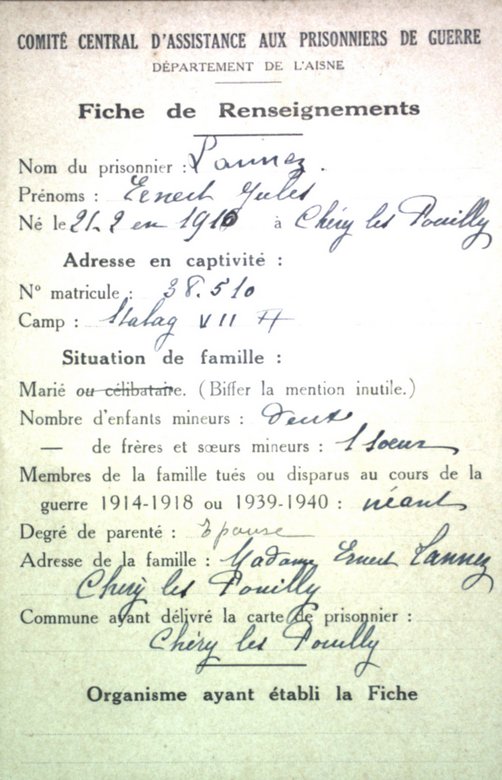 COMITÉ CENTRAL D'ASSISTANCE AUX PRISONNIERS DE GUERRE
DÉPARTEMENT DE L'AISNE
Fiche de Renseignements
Nom du prisonnier : Lannez.
Prénoms : Ernest Jules
Né le 21-2 en 1910 à Chéry les Pouilly
Adresse en captivité :
N° matricule : 38.510
Camp : Stalag VII A
Situation de famille :
Marié ou célibataire. (Biffer la mention inutile.)
Nombre d'enfants mineurs : deux
— de frères et sœurs mineurs : 1 soeur
Membres de la famille tués ou disparus au cours de la
guerre 1914-1918 ou 1939-1940 : néant
Degré de parenté : Epouse
Adresse de la famille : Madame Ernest Lannez
Chéry les Pouilly
Commune ayant délivré la carte de prisonnier :
Chéry les Pouilly
Organisme ayant établi la Fiche